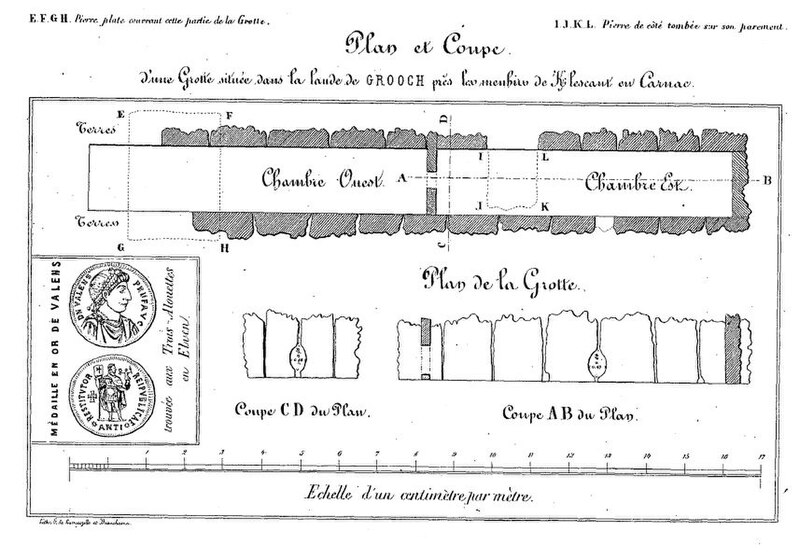 E.F.G.H. Pierre plate couvrant cette partie de la Grotte.
I.J.K.L. Pierre de côté tombée sur son parement.
Plan et Coupe
d'une Grotte située dans la lande de GROOCH près les menhirs de Klescant en Carnac.
E
F
D
Terres
I
L
Chambre Ouest.
A
Chambre Est.
B
J
K
Terres
G
H
C
Plan de la Grotte.
MÉDAILLE EN OR DE VALENS
DN VALENS PERFAVG
RESTITUTOR REIPVBLICAE
ANTI
trouvée aux Trois Alouettes
en Elven
Coupe CD du Plan.
Coupe AB du Plan.
1 2 3 4 5 6 7 8 9 10 11 12 13 14 15 16 17
Echelle d'un centimètre par mètre.